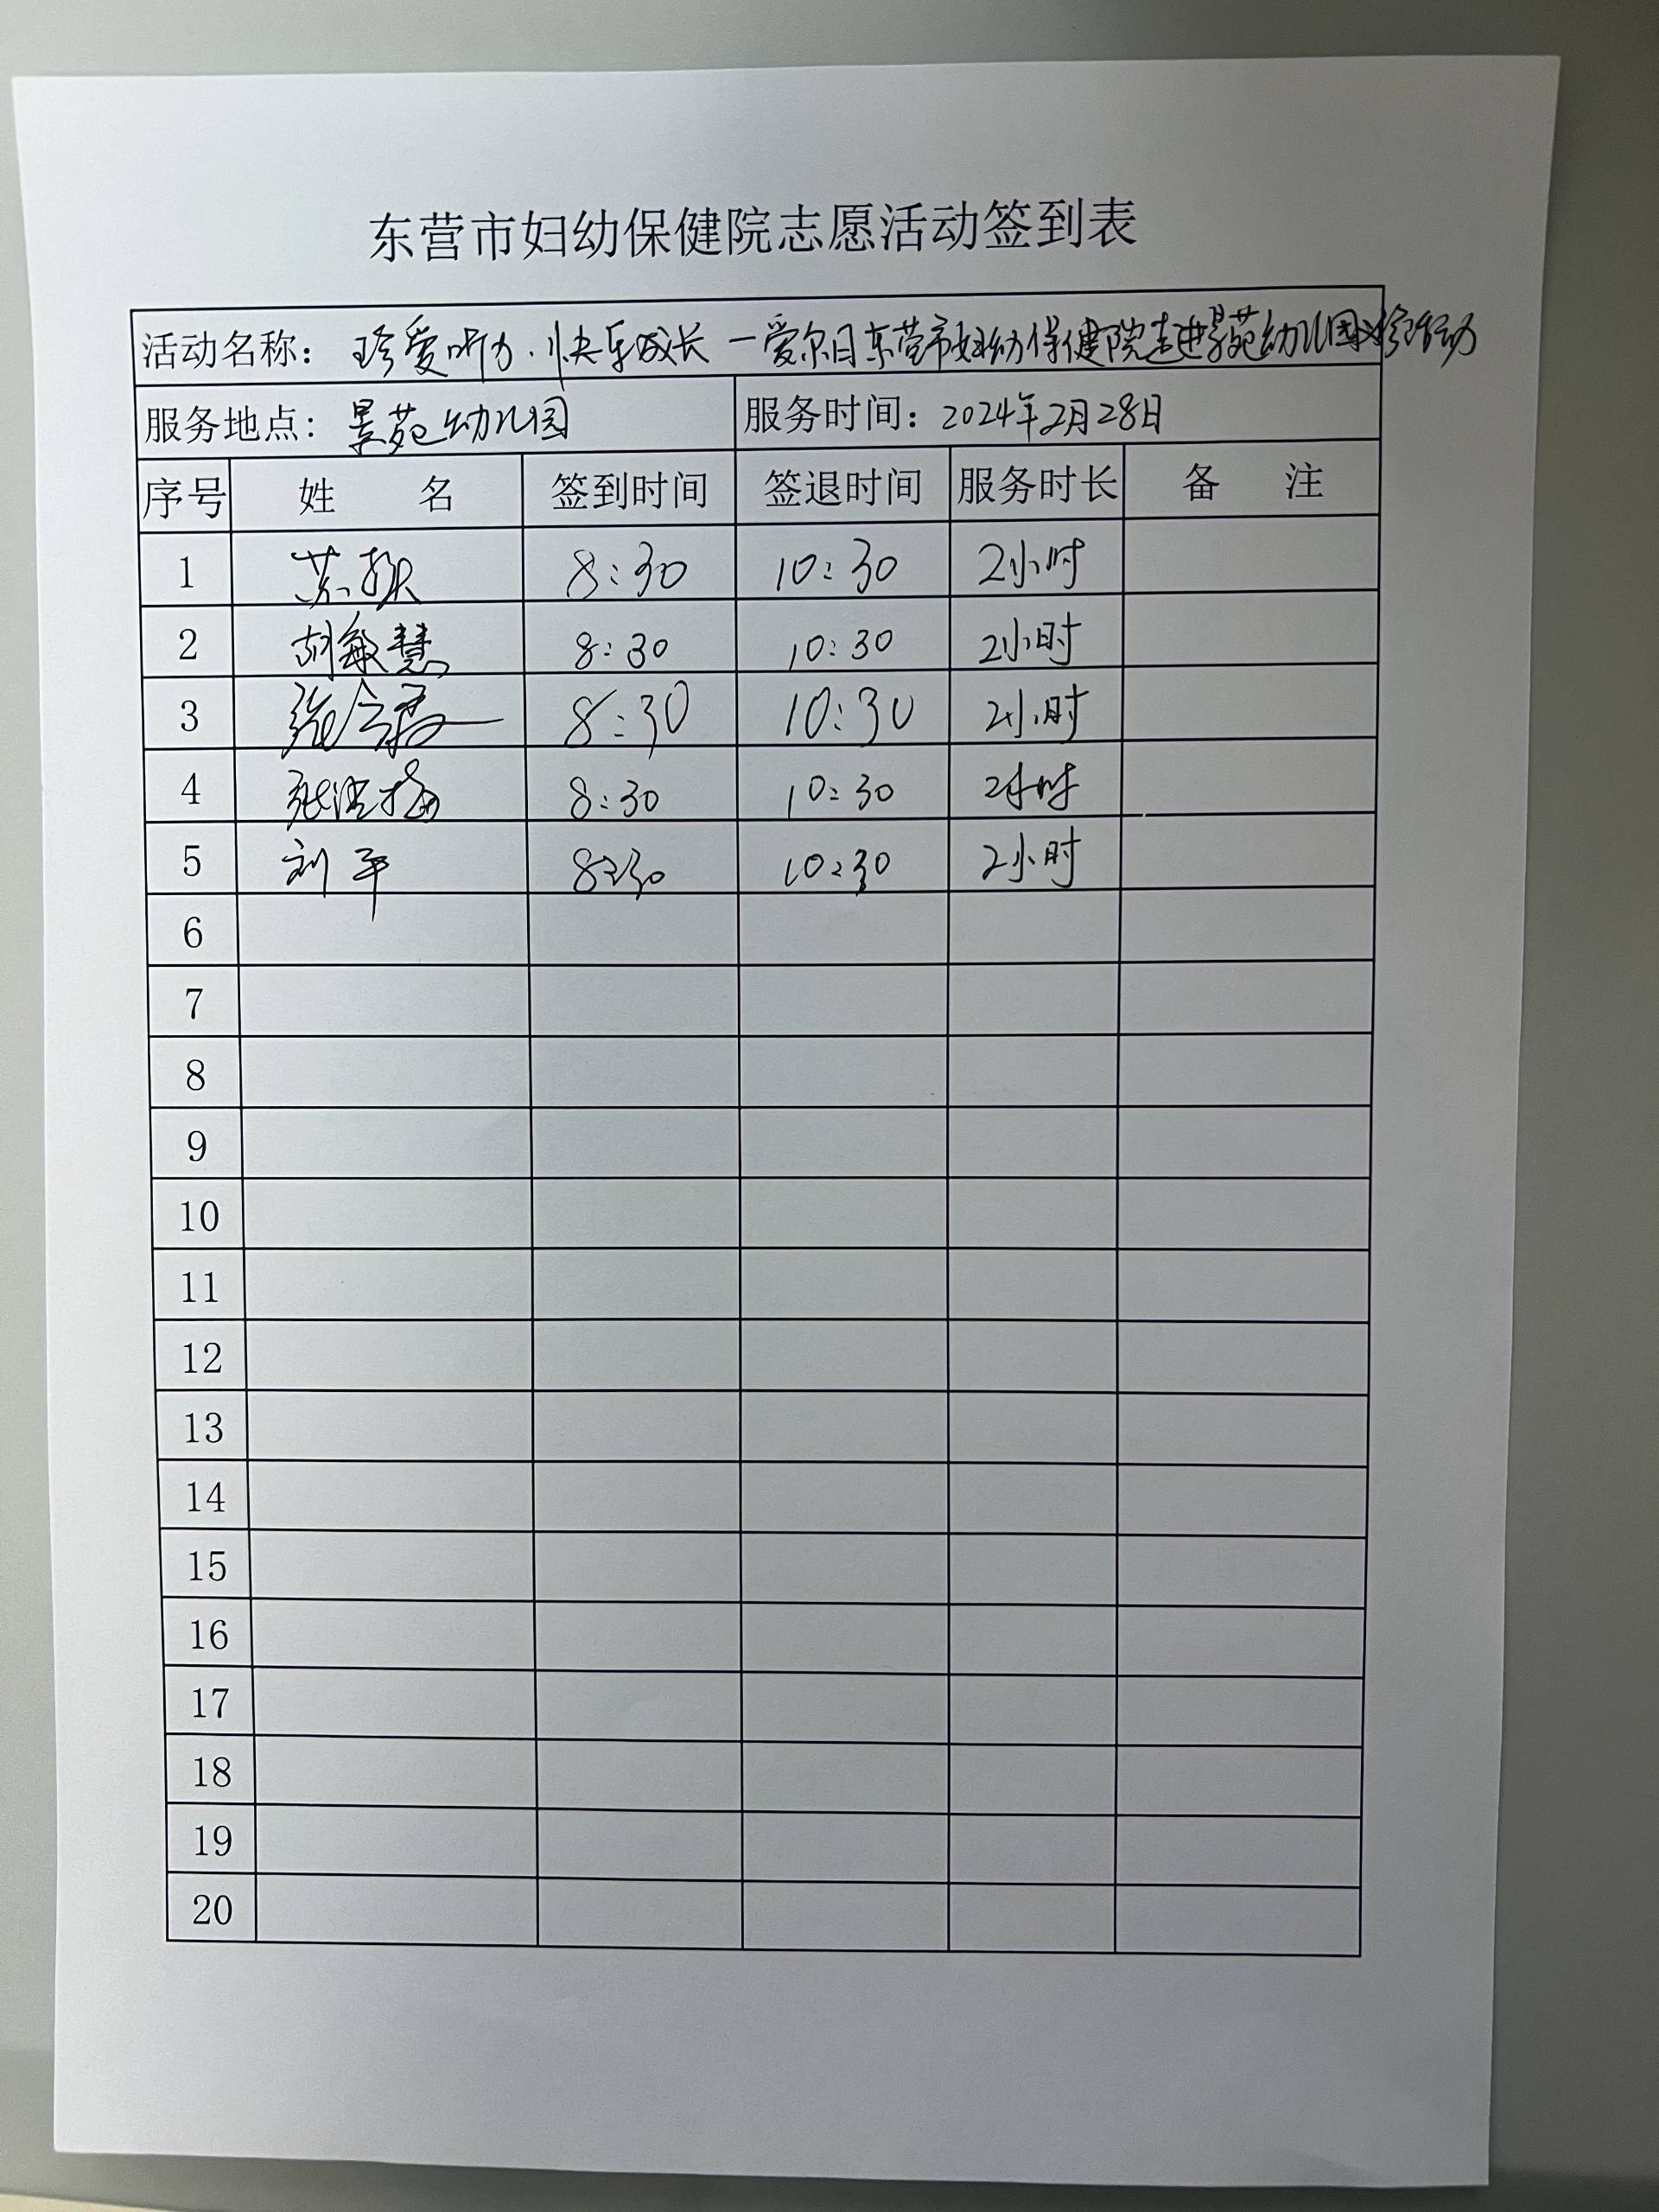 东营市妇幼保健院志愿活动签到表
活动名称：珍爱听力·快乐成长一爱尔日东营市妇幼保健院走进景苑幼儿园义诊活动
服务地点：景苑幼儿园 服务时间：2024年2月28日
序号 姓 名 签到时间 签退时间 服务时长 备 注
1 苏 8:30 10:30 2小时
2 胡敏慧 8:30 10:30 2小时
3 张 8:30 10:30 2小时
4 张洪梅 8:30 10:30 2小时
5 刘平 8:30 10:30 2小时
6
7
8
9
10
11
12
13
14
15
16
17
18
19
20